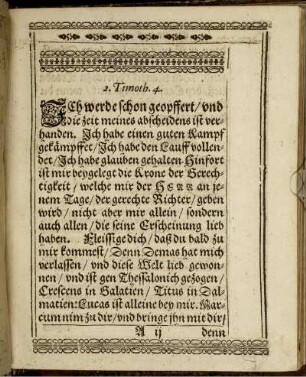 2. Timoth. 4.
ICh werde schon geopffert / vnd
die zeit meines abscheidens ist ver-
handen. Ich habe einen guten Kampf
gekämpffet / Ich habe den Lauff vollen-
det / Ich habe glauben gehalten Hinfort
ist mir beygelegt die Krone der Gerech-
tigkeit / welche mir der HERR an je-
nem Tage / der gerechte Richter / geben
wird / nicht aber mir allein / sondern
auch allen / die seine Erscheinung lieb
haben. Fleissige dich / daß du bald zu
mir kommest / Denn Demas hat mich
verlassen / vnd diese Welt lieb gewon-
nen / vnd ist gen Thessalonich gezogen /
Crescens in Galatien / Titus in Dal-
matien: Lucas ist alleine bey mir. Mar-
cum nim zu dir / vnd bringe jhn mit dir /
A ij denn